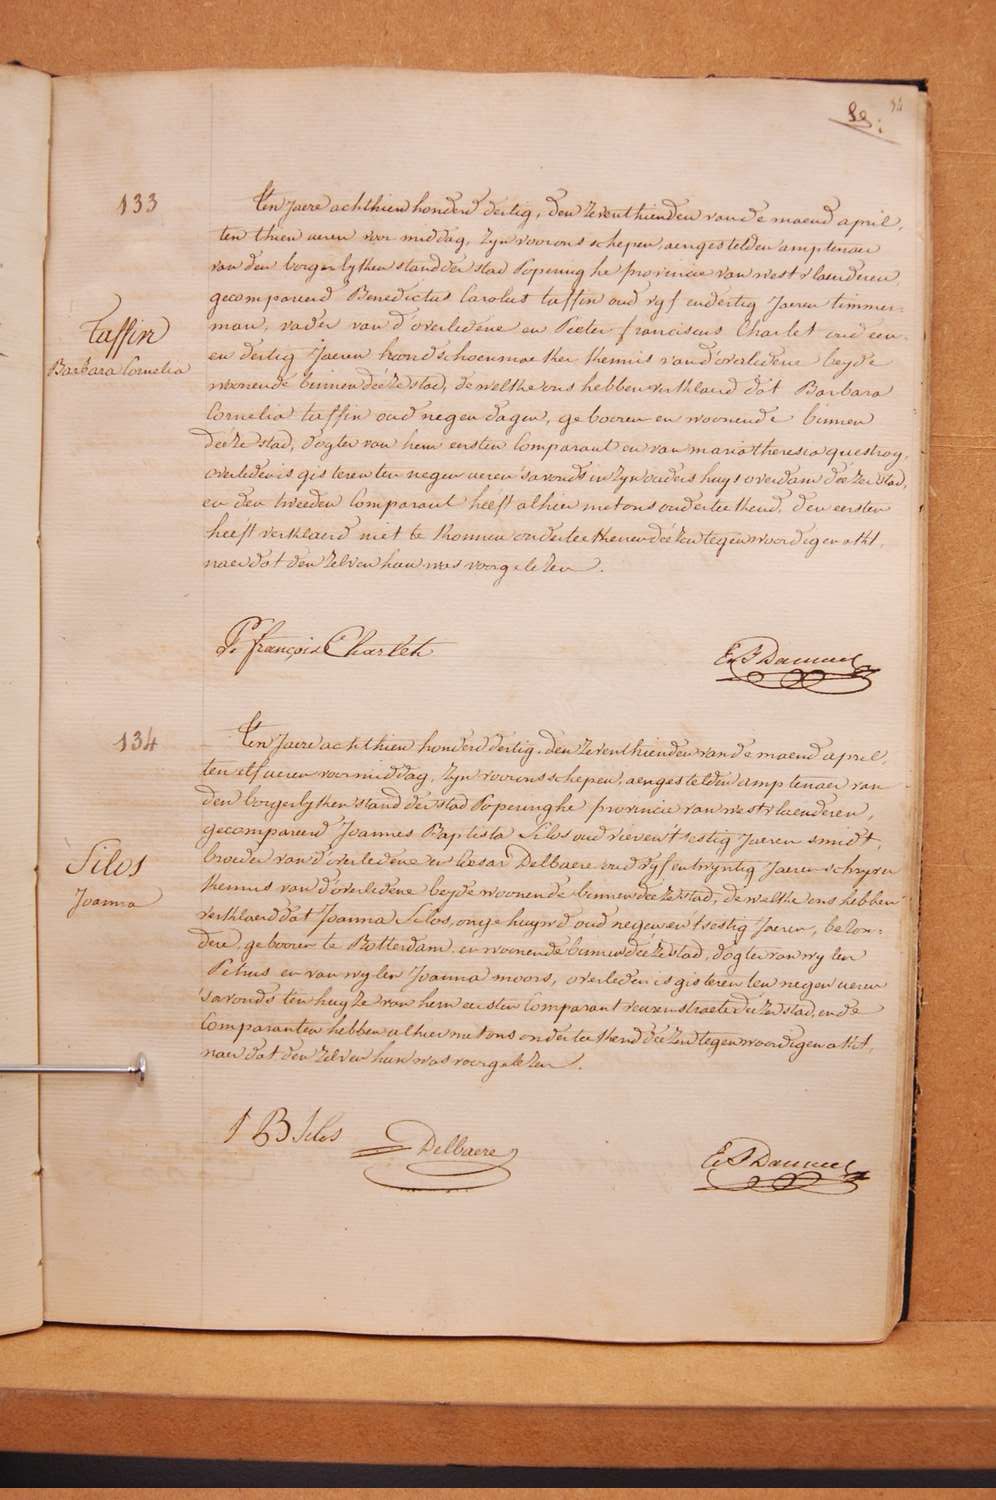 34
133
Ten Jaere achthien honderd dertig, den Zeventhienden van de maend april,
ten thien ueren voor middag, Zyn voor ons schepen, aengestelden amptenaer
van den borgerlyken stand der stad Poperinghe provincie van westvlaenderen,
gecompareerd Benedictus Carolus taffin oud vyf endertig Jaeren timmer-
Taffin
man, vader van d'overledene en Pieter franciscus Charlet oud een-
Barbara Cornelia
en dertig Jaeren handschoenmaeker kennis vand'overledene beyde
woonende binnen déeze stad, dewelke ons hebben verklaerd dat Barbara
Cornelia taffin oud negen dagen, gebooren en woonende binnen
déeze stad, dogter van hem eersten Comparant en van maria theresia questroy,
overleden is gisteren ten negen ueren 'savonds in Zyn ouders huys overdam déezer stad,
en den tweeden Comparant héeft alhier met ons onderteekend, den eersten
héeft verklaerd niet te konnen onderteekenen déezen tegenwoordigen akt,
naer dat den Zelven hun was voorgelezen.
P. françois Charlet
134
Ten Jaere achthien honderd dertig, den Zeventhienden van de maend april,
ten elf ueren voormiddag, Zyn voor ons schepen, aengestelden amptenaer van
den borgerlyken stand der stad Poperinghe provincie van westvlaenderen,
gecompareerd Joannes Baptista Silos oud vieventsestig Jaeren smidt,
Silos
broeder van d'overledene en Cesar Delbaere oud vyf entwyntig Jaeren schryver
Joanna
kennis van d'overledene beyde woonende binnen déeze stad, dewelke ons hebben
verklaerd dat Joanna Silos, ongehuywd oud negenentsestig Jaeren, bezon-
dere, gebooren te Rotterdam en woonende binnen déeze stad, dogter van wylen
Petrus en van wylen Joanna moors, overleden is gisteren ten negen ueren
'savonds ten huyze van hem eersten Comparant veurnstraete déezer stad, en de
Comparanten hebben alhier met ons onderteekend déezen tegenwoordigen akt,
naer dat den Zelven hun was voorgelezen.
J B Silos
Delbaere